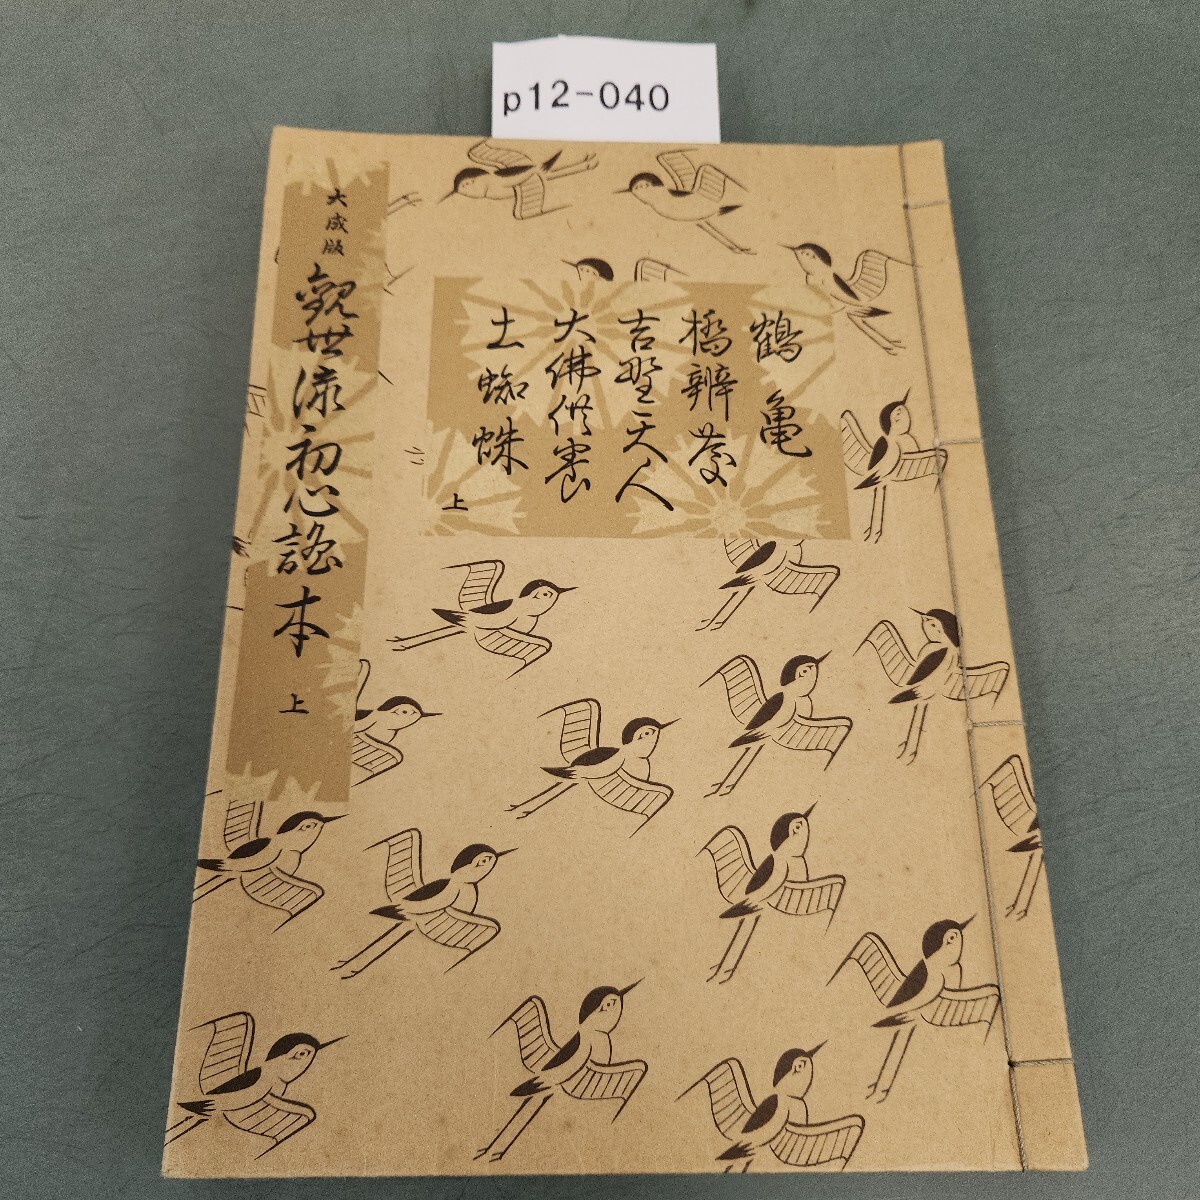 p12-040
鶴亀
橋辨慶
吉野天人
大佛供養
土蜘蛛
上
大成版
觀世流初心謠本
上